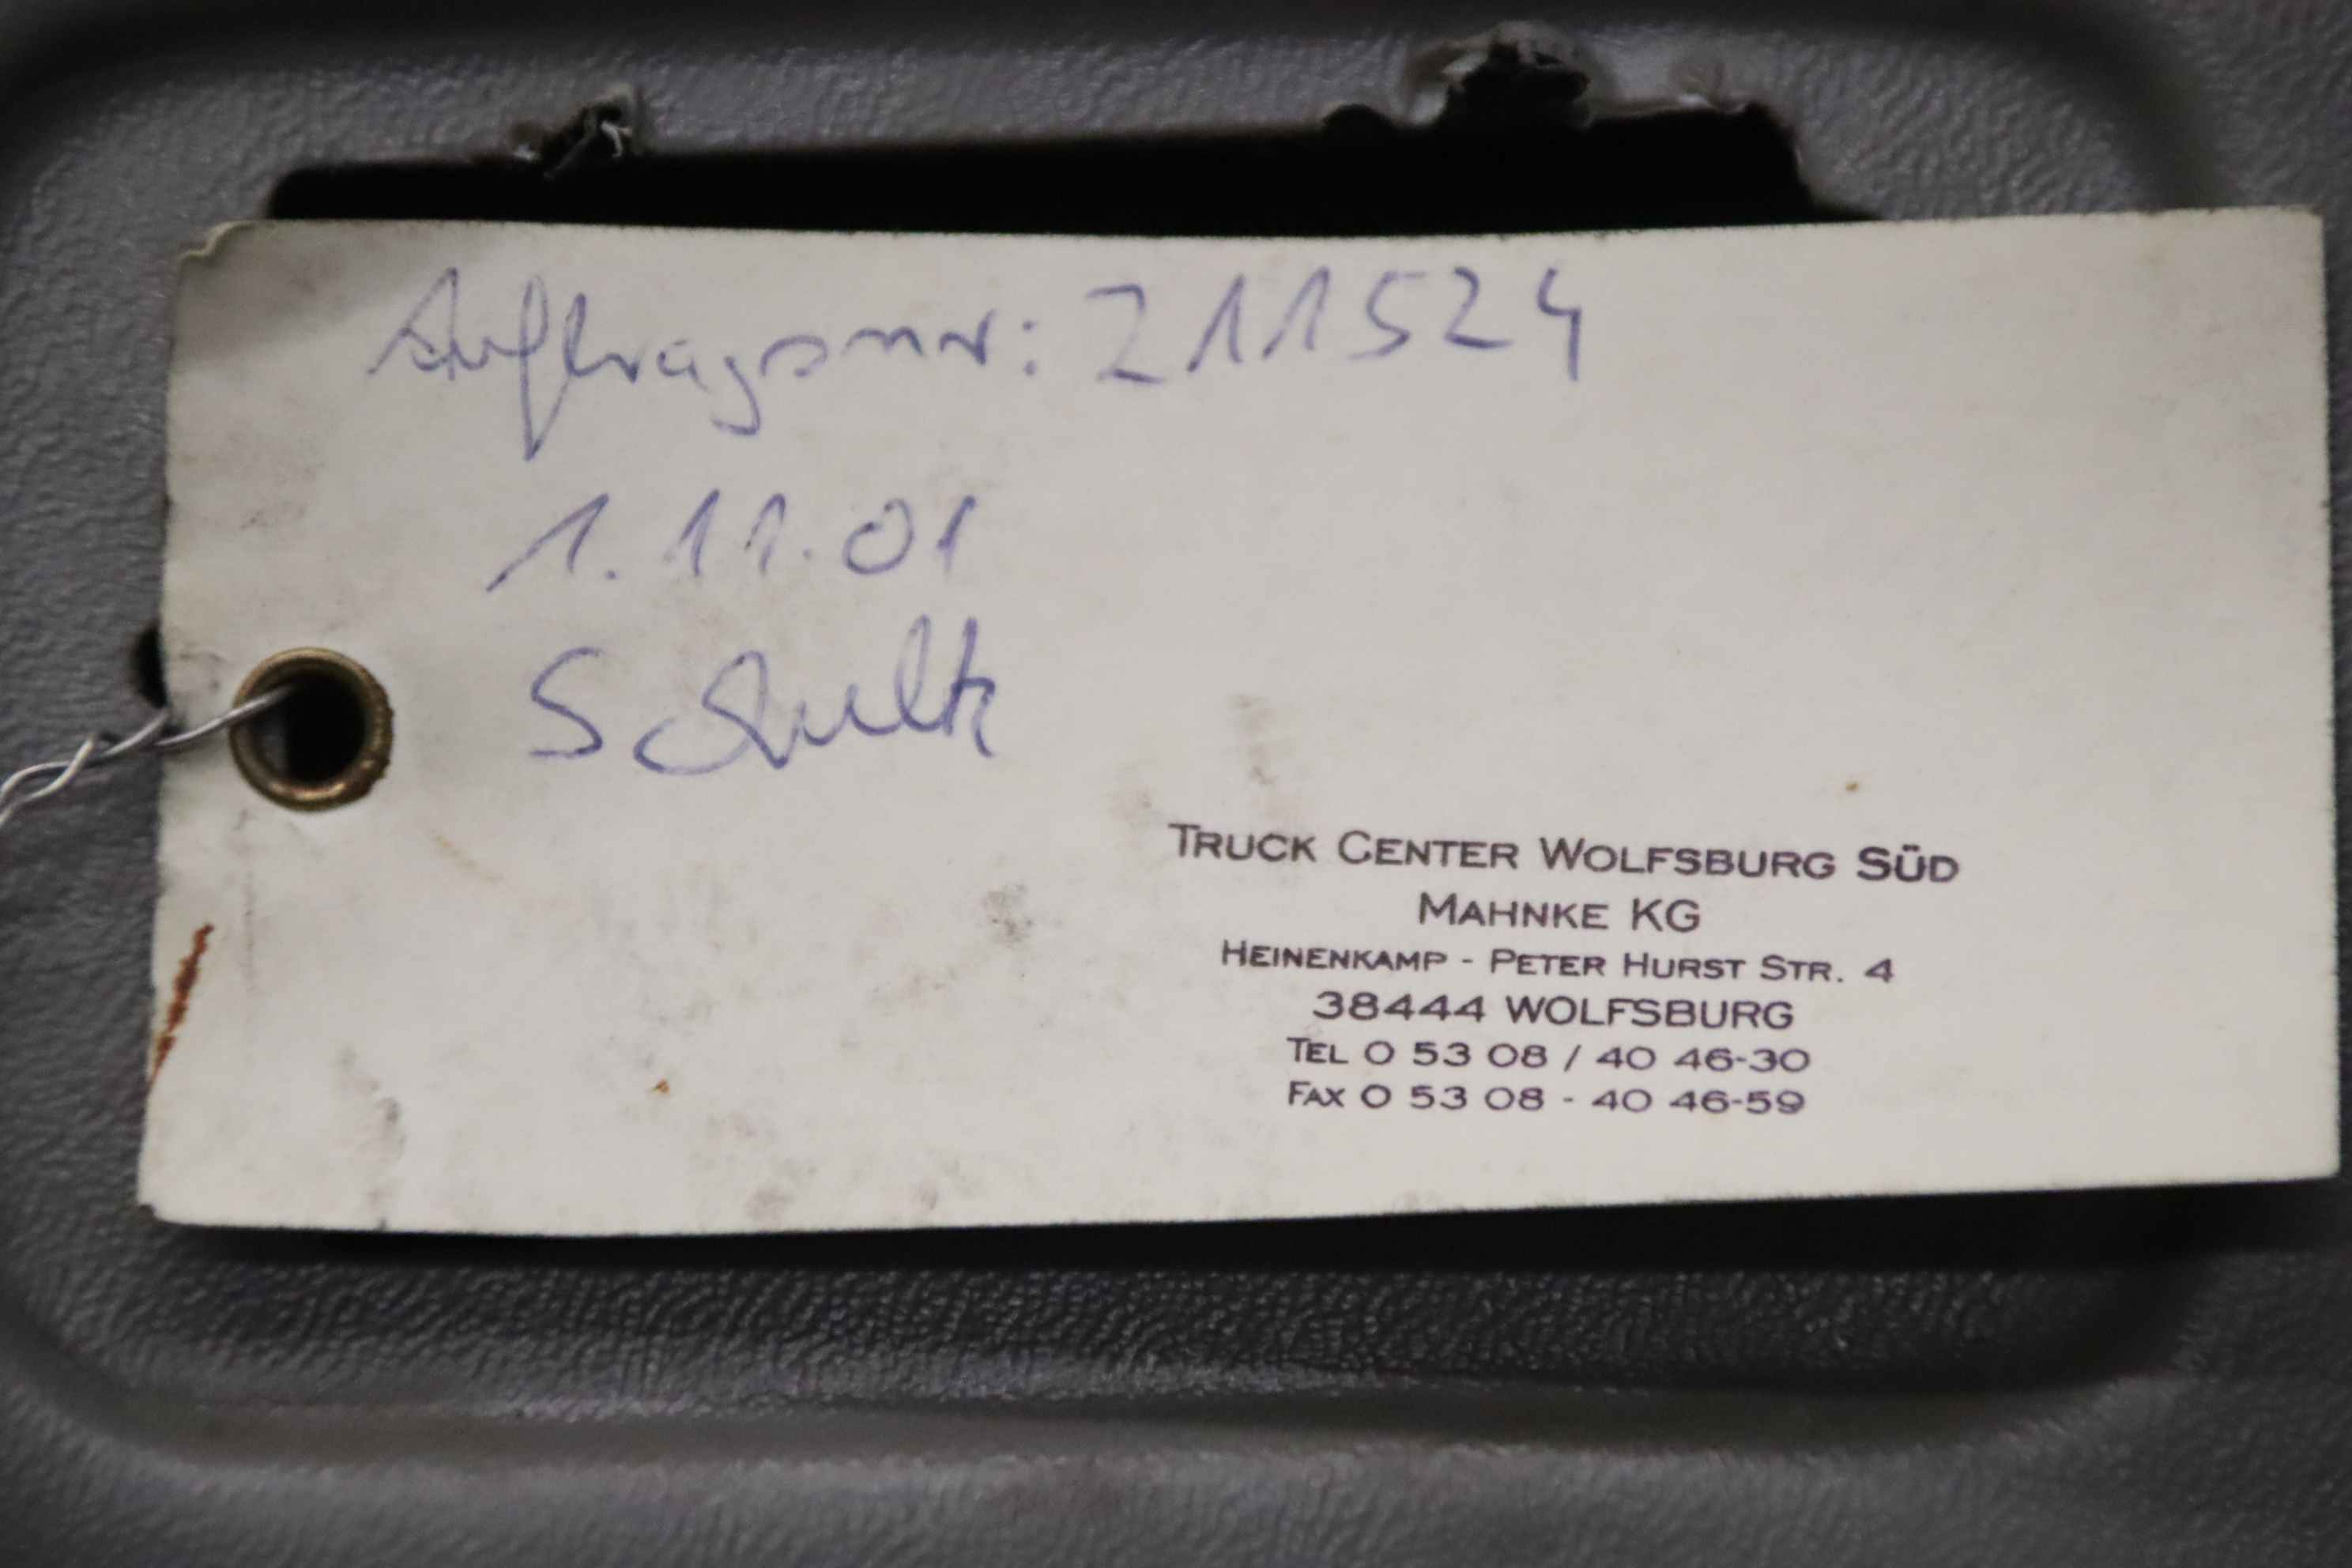 Auftragsnr: 211524
1.11.01
Schultz
TRUCK CENTER WOLFSBURG SÜD
MAHNKE KG
HEINENKAMP - PETER HURST STR. 4
38444 WOLFSBURG
TEL 0 53 08 / 40 46-30
FAX 0 53 08 - 40 46-59